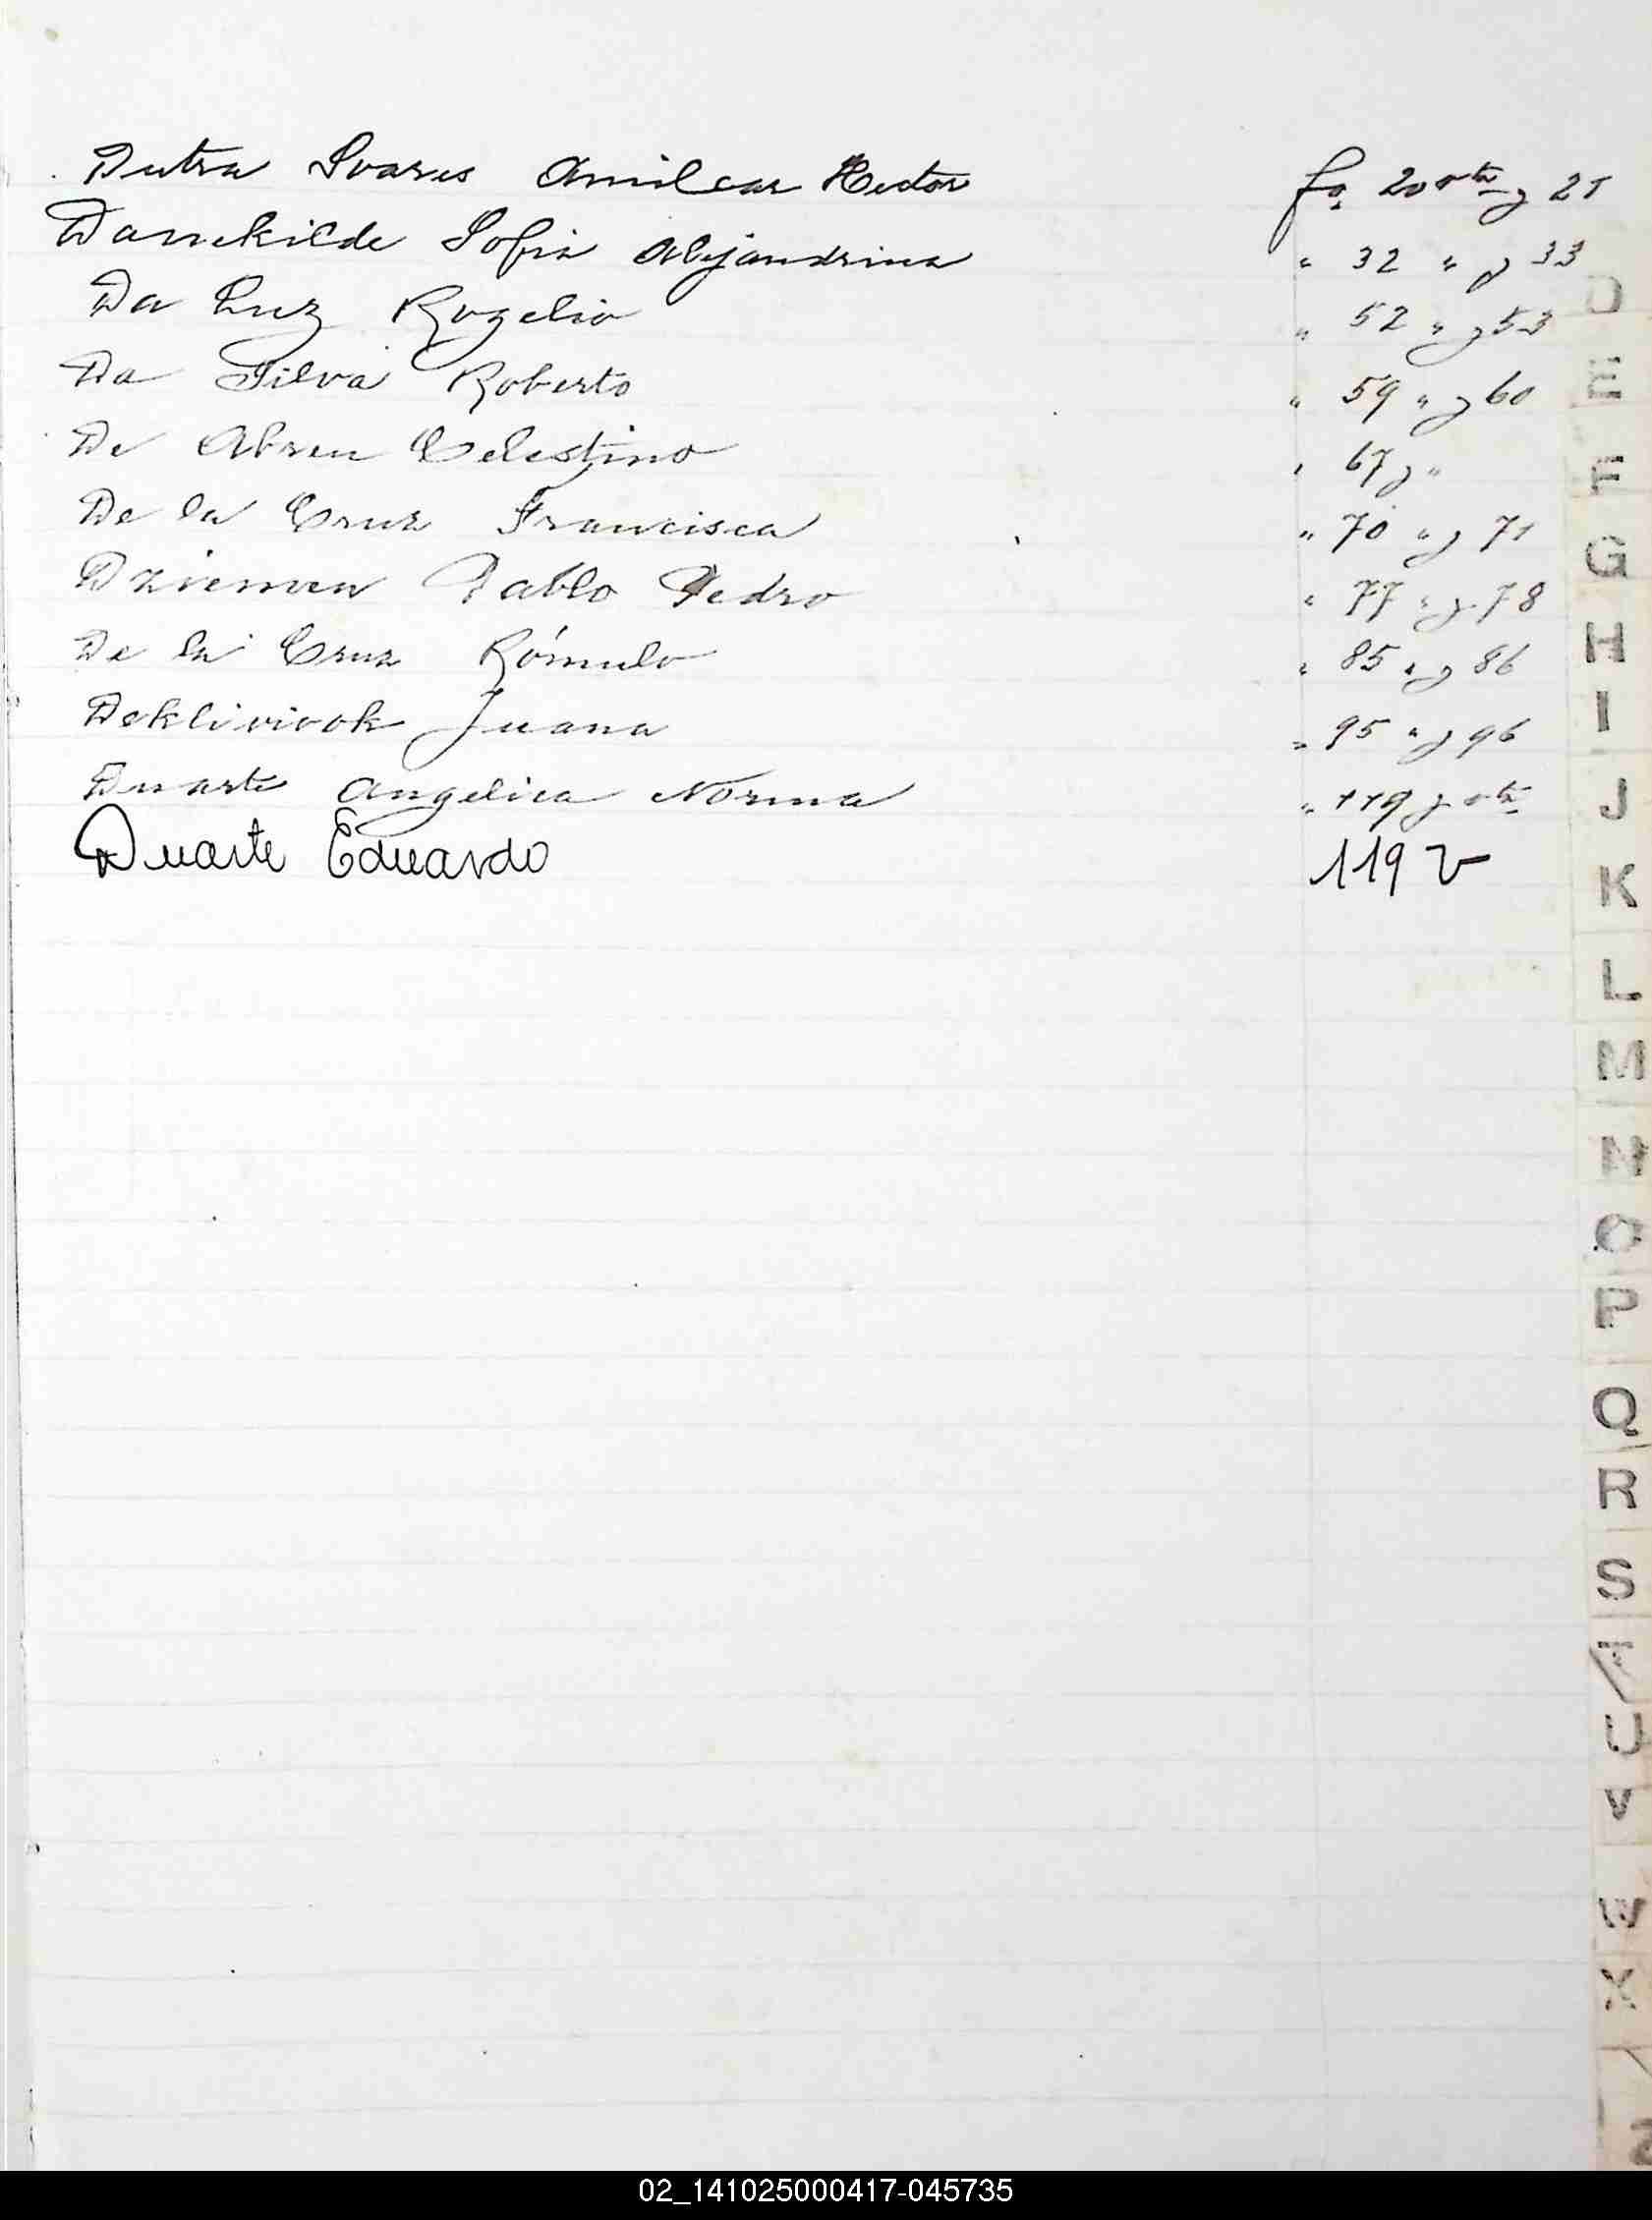 Dutra Suares Amilcar Hector fo. 20 vta y 21
Dannekilde Sofia Alejandrina " 32 " y 33
Da Luz Rogelio " 52 " y 53
Da Silva Roberto " 59 " y 60
De Abreu Celestino " 67 y "
De la Cruz Francisca " 70 " y 71
Dziemen Pablo Pedro " 77 " y 78
De la Cruz Rómulo " 85 " y 86
Deklivivok Juana " 95 " y 96
Duarte Angelica Norma " 119 y vta
Duarte Eduardo 119 v
D
E
F
G
H
I
J
K
L
M
N
O
P
Q
R
S
T
U
V
W
X
02_141025000417-045735